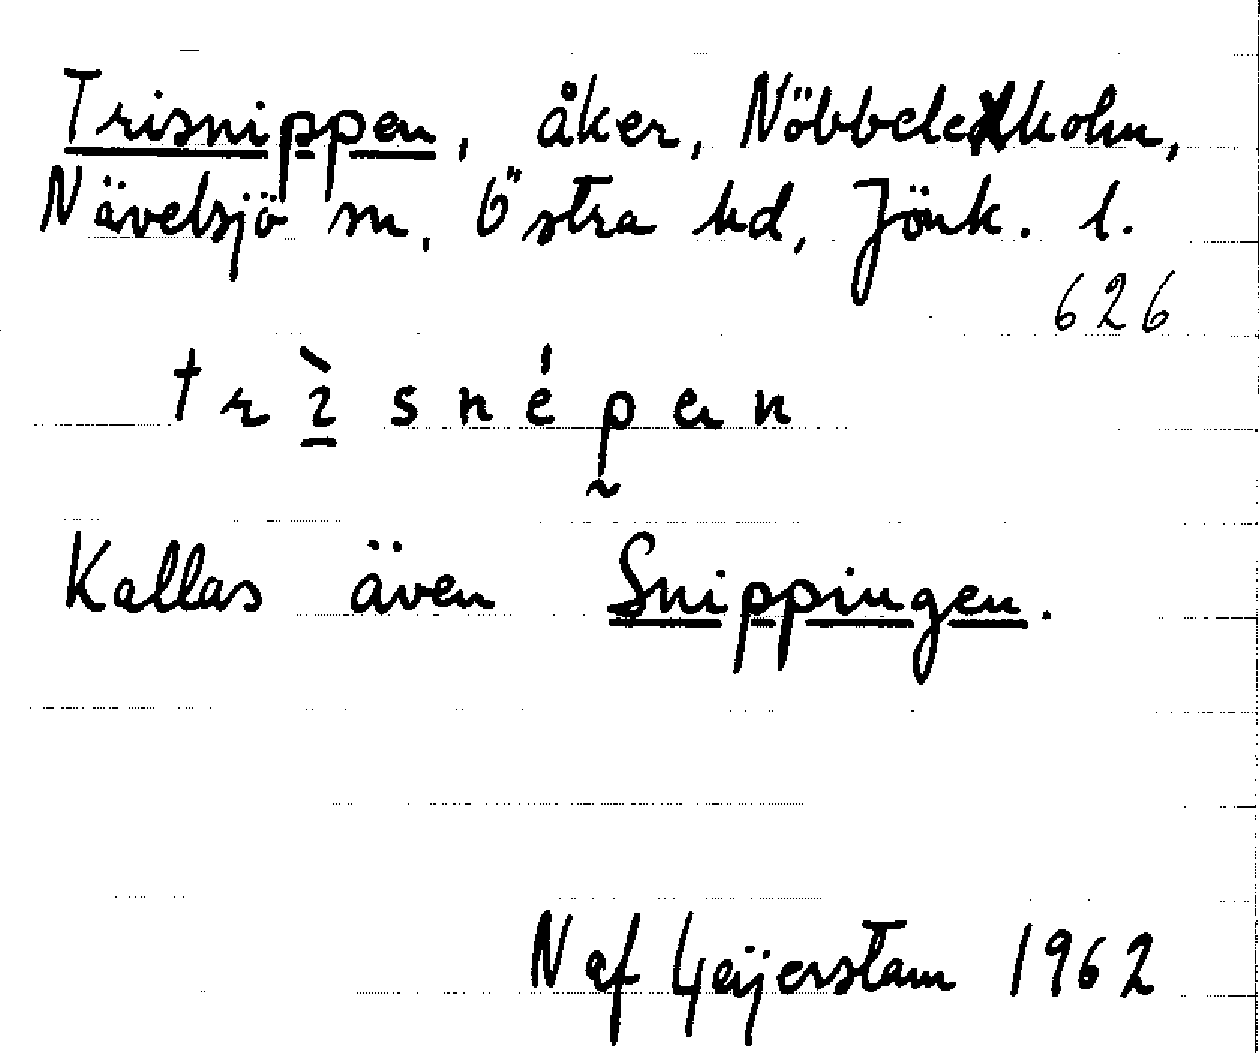 Trisnippen, åker, Nöbbele kohn,
Nävelsjö sn, Östra hd, Jönk. l.
626
Kallas även Snippingen.
N af Geijerstam 1962